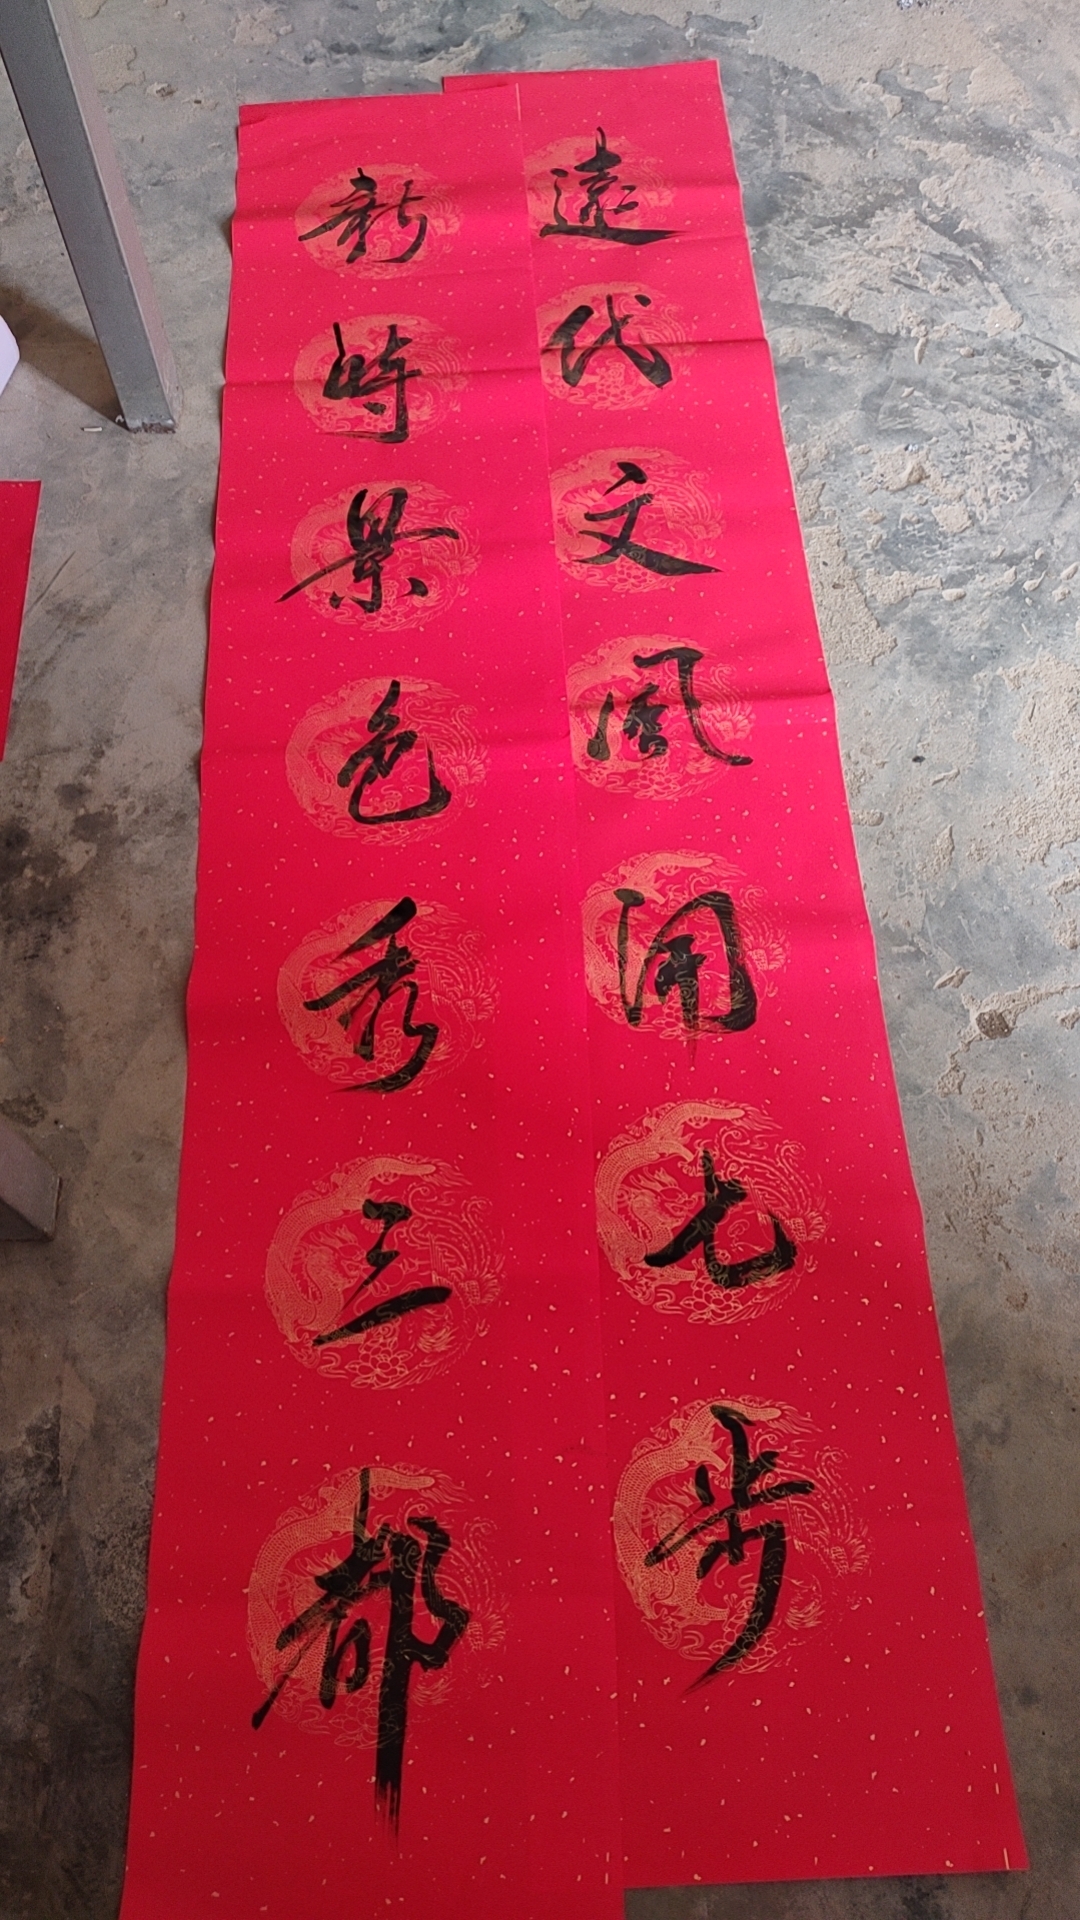 遠代文風開七步
新時景色秀三都